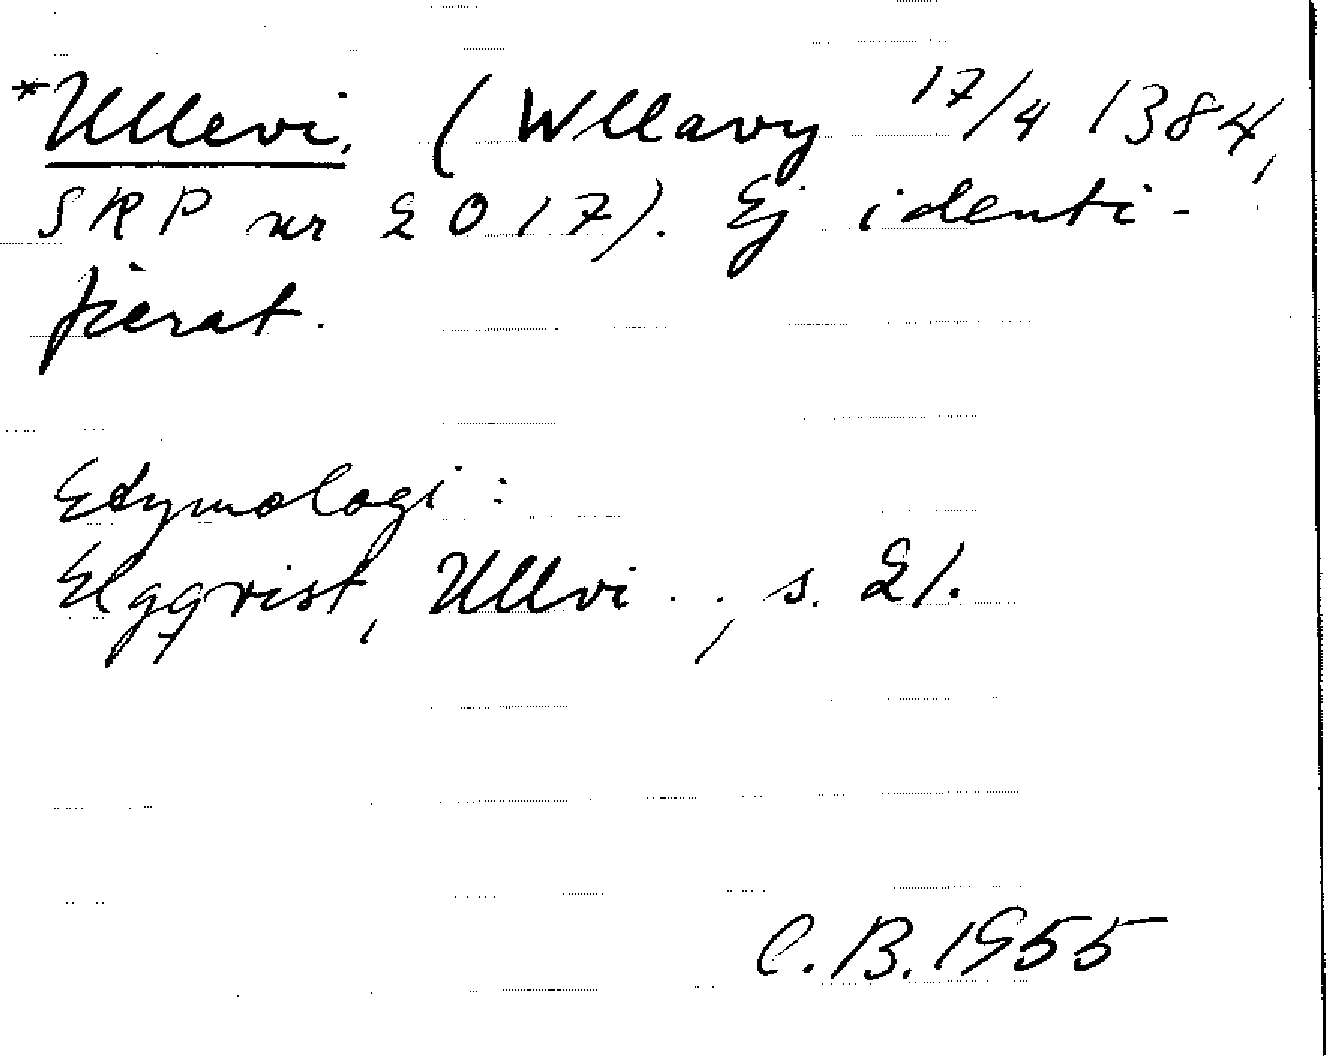 *Ullevi. (Wllavy 17/4 1384,
SRP nr 2017). Ej identi-
fierat.
Etymologi:
Elgqvist, Ullvi . ., s. 21.
C.B. 1955